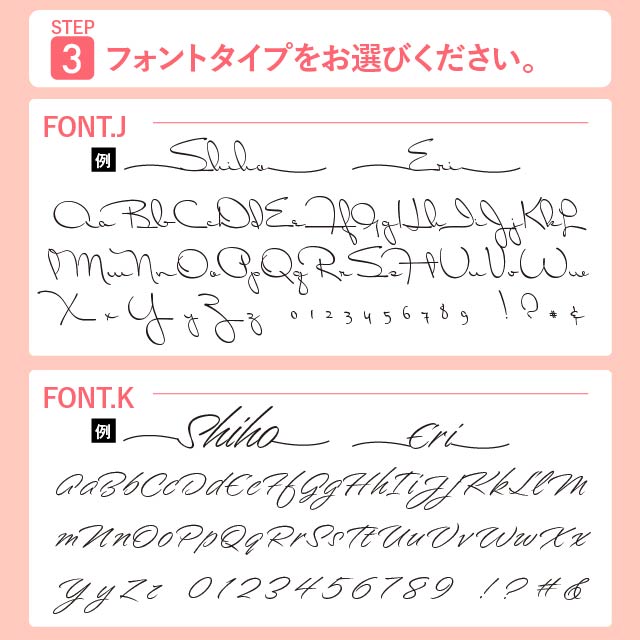 STEP
3 フォントタイプをお選びください。
FONT.J
例 Shiho Eri
AaBbCcDdEeFfGgHhIiJjKkL
lMmNnOoPpQqRrSsTtUuVvWw
XxYyZz 0 1 2 3 4 5 6 7 8 9 ! ? * &
FONT.K
例 Shiho Eri
AaBbCcDdEeFfGgHhIiJjKkLlM
mNnOoPpQqRrSsTtUuVvWwXx
YyZz 0 1 2 3 4 5 6 7 8 9 ! ? # &